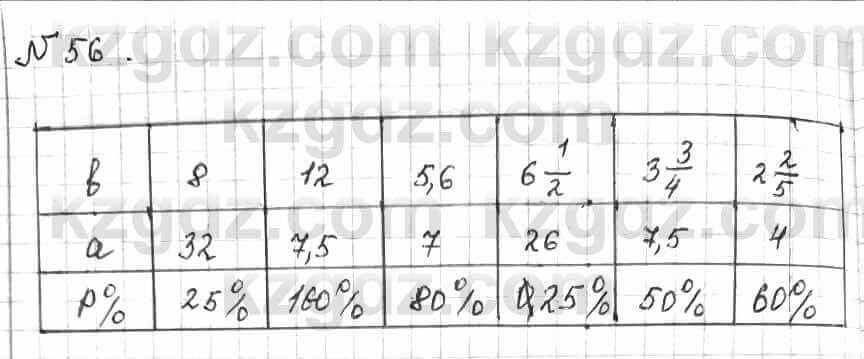 kzgdz.com kzgdz.com
№ 56.
kzgdz.com
в 8 12 5,6 6 1/2 3 3/4 2 2/5
kzgdz.com kzgdz.com
а 32 7,5 7 26 7,5 4
р% 25% 160% 80% 25% 50% 60%
kzgdz.com
kzgdz.com kzgdz.com